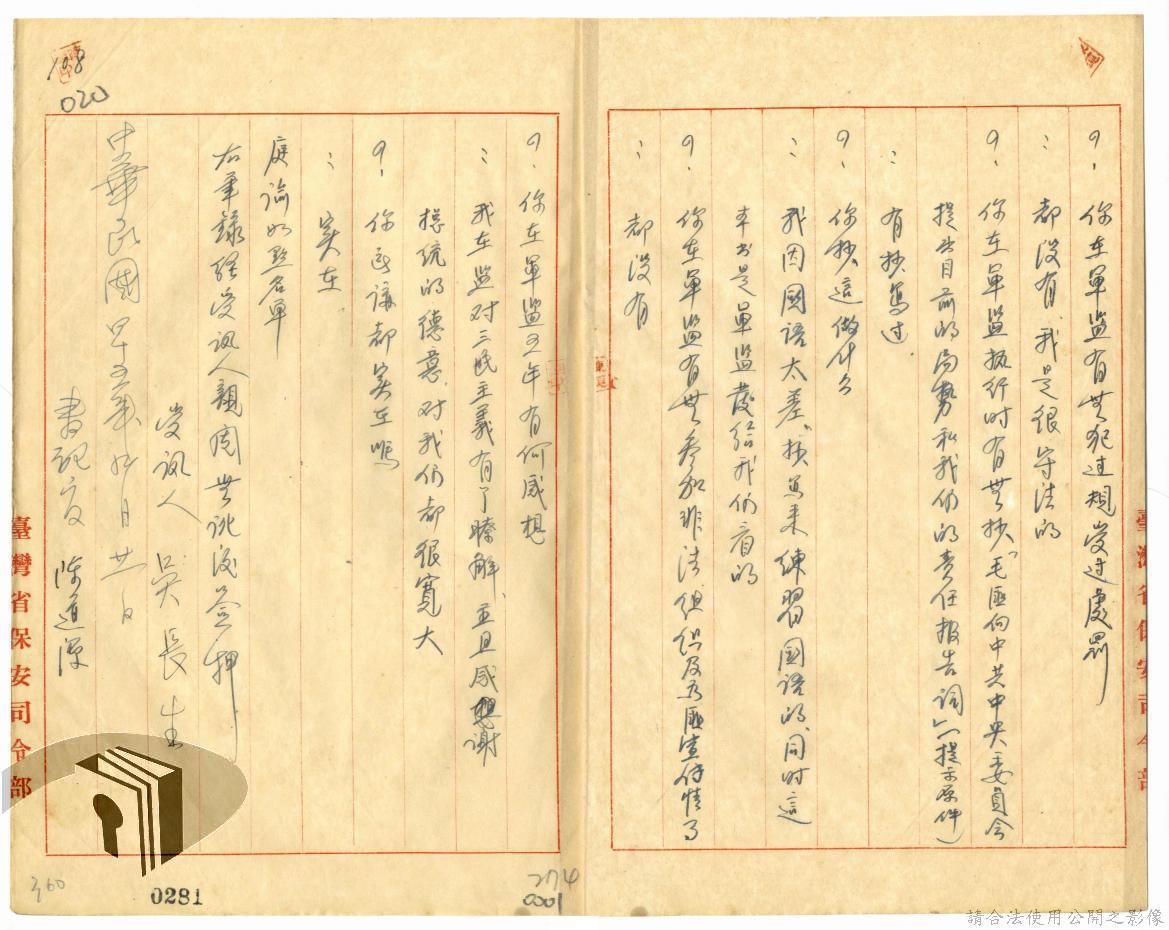 問、你在軍監有無犯過規受过處罰
：都没有、我是很守法的
問、你在軍監执行时有無抄「毛匪向中共中央委員会
提出目前的局勢和我们的責任报告詞」（提示原件）
：有抄寫过
問、你抄這做什么
：我因國語太差、抄寫来練習國語的、同时這
本书是軍監發給我们看的
問、你在軍監有無参加非法组织及为匪宣传情事
：都没有
臺灣省保安司令部
問、你在軍監五年有何感想
：我在监对三民主義有了瞭解、並且感謝
總統的德意、对我们都很寬大
問、你所講都実在嗎
：実在
庭諭如點名單
右筆錄経受訊人親閱無訛後簽押
受訊人 吳長生
中華民國四十五年 月廿一日
書記官 陳道深
臺灣省保安司令部
108
020
360
0281
274
0001
請合法使用公開之影像